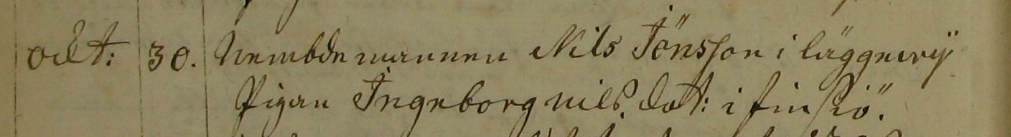 oct: 30. Nembdemannen Nils Jönsson i läggewij
Pigan Ingeborg nilsdot: i finsiö.